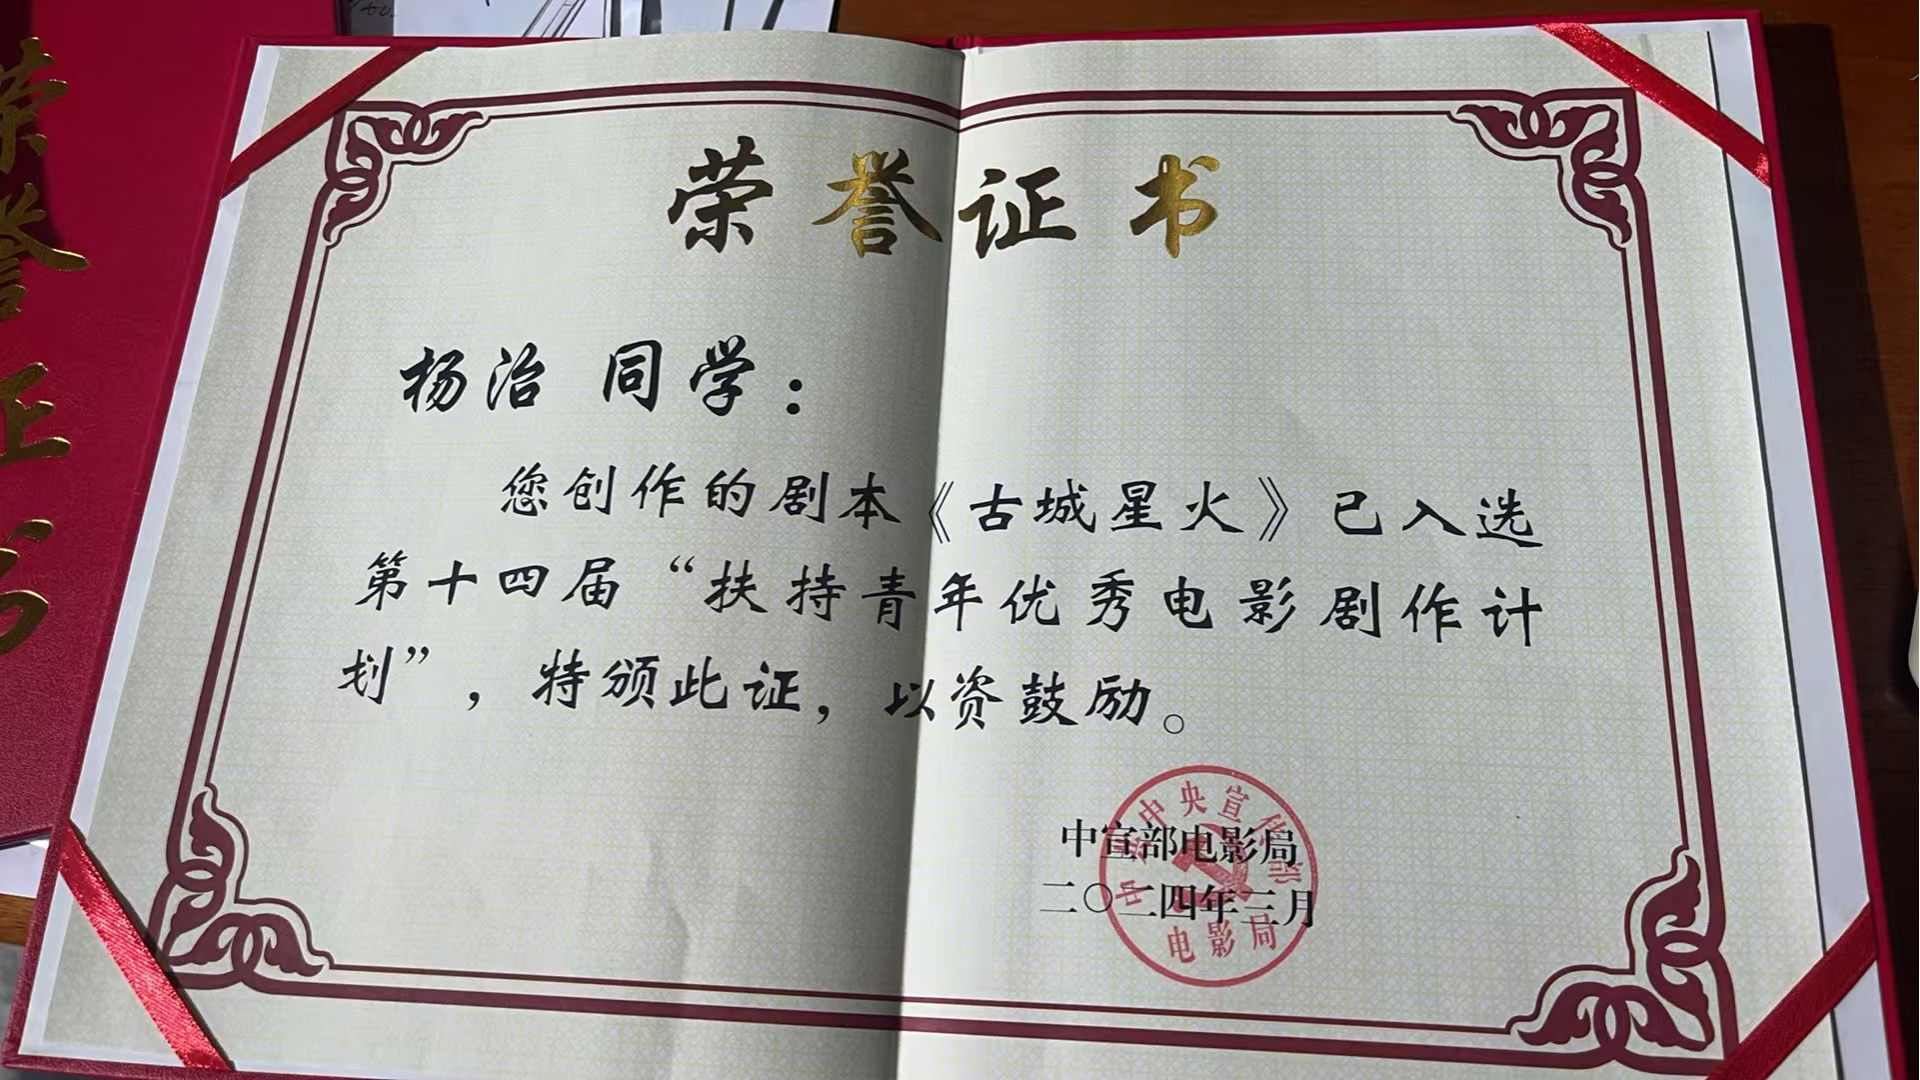 荣誉证书
荣誉证书
杨治 同学：
您创作的剧本《古城星火》已入选
第十四届“扶持青年优秀电影剧作计
划”，特颁此证，以资鼓励。
中宣部电影局
二〇二四年三月
中共中央宣传部
电影局